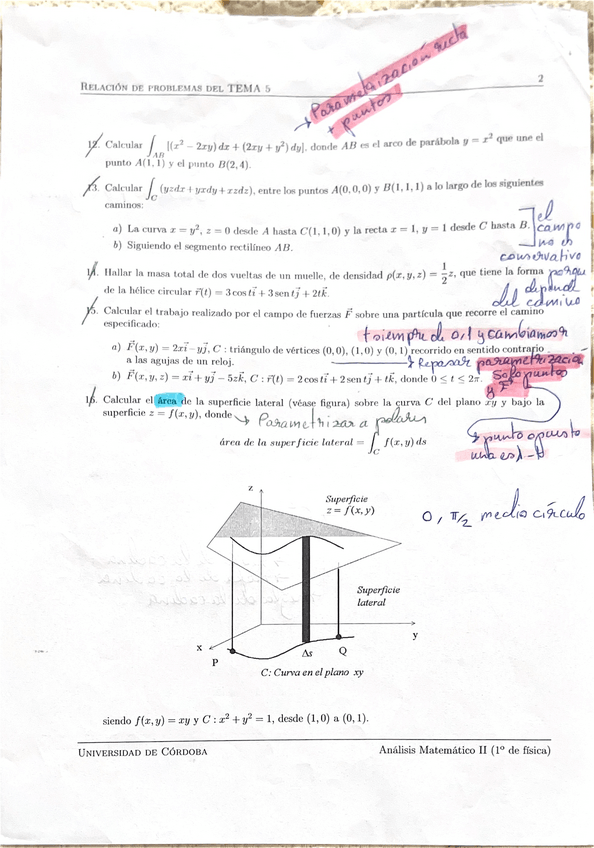 Parametrización recta
→ + puntos
RELACIÓN DE PROBLEMAS DEL TEMA 5 2
12. Calcular ∫_{AB} [(x² − 2xy) dx + (2xy + y²) dy], donde AB es el arco de parábola y = x² que une el
punto A(1,1) y el punto B(2,4).
13. Calcular ∫_C (yzdx + yxdy + xzdz), entre los puntos A(0,0,0) y B(1,1,1) a lo largo de los siguientes
caminos:
a) La curva x = y², z = 0 desde A hasta C(1,1,0) y la recta x = 1, y = 1 desde C hasta B.
b) Siguiendo el segmento rectilíneo AB.
el
campo
no es
conservativo
porque
depende
del camino
14. Hallar la masa total de dos vueltas de un muelle, de densidad ρ(x, y, z) = 1/2 z, que tiene la forma
de la hélice circular r⃗(t) = 3 cos t i⃗ + 3 sen t j⃗ + 2t k⃗.
15. Calcular el trabajo realizado por el campo de fuerzas F⃗ sobre una partícula que recorre el camino
especificado:
t siempre de 0,1 y cambiamos
a) F⃗(x, y) = 2x i⃗ − y j⃗, C : triángulo de vértices (0,0), (1,0) y (0,1) recorrido en sentido contrario
a las agujas de un reloj.
→ Repasar parametrización
Solo puntos
y F
b) F⃗(x, y, z) = x i⃗ + y j⃗ − 5z k⃗, C : r⃗(t) = 2 cos t i⃗ + 2 sen t j⃗ + t k⃗, donde 0 ≤ t ≤ 2π.
16. Calcular el área de la superficie lateral (véase figura) sobre la curva C del plano xy y bajo la
superficie z = f(x, y), donde
→ Parametrizar a polares
→ punto opuesto
una es 1-t
área de la superficie lateral = ∫_C f(x, y) ds
0, π/2 medio círculo
z
Superficie
z = f(x, y)
Superficie
lateral
x
y
P
Δs
Q
C: Curva en el plano xy
siendo f(x, y) = xy y C : x² + y² = 1, desde (1,0) a (0,1).
UNIVERSIDAD DE CÓRDOBA Análisis Matemático II (1º de física)